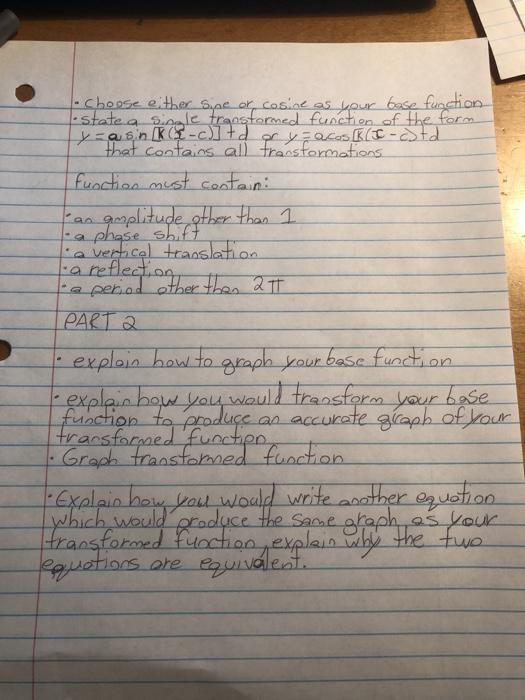 • Choose either sine or cosine as your base function
• state a single transformed function of the form
y = a sin [k(x - c)] + d or y = a cos [k(x - c) + d
that contains all transformations
function must contain:
• an amplitude other than 1
• a phase shift
• a vertical translation
• a reflection
• a period other than 2π
PART 2
• explain how to graph your base function
• explain how you would transform your base
function to produce an accurate graph of your
transformed function
• Graph transformed function
• Explain how you would write another equation
which would produce the same graph as your
transformed function, explain why the two
equations are equivalent.